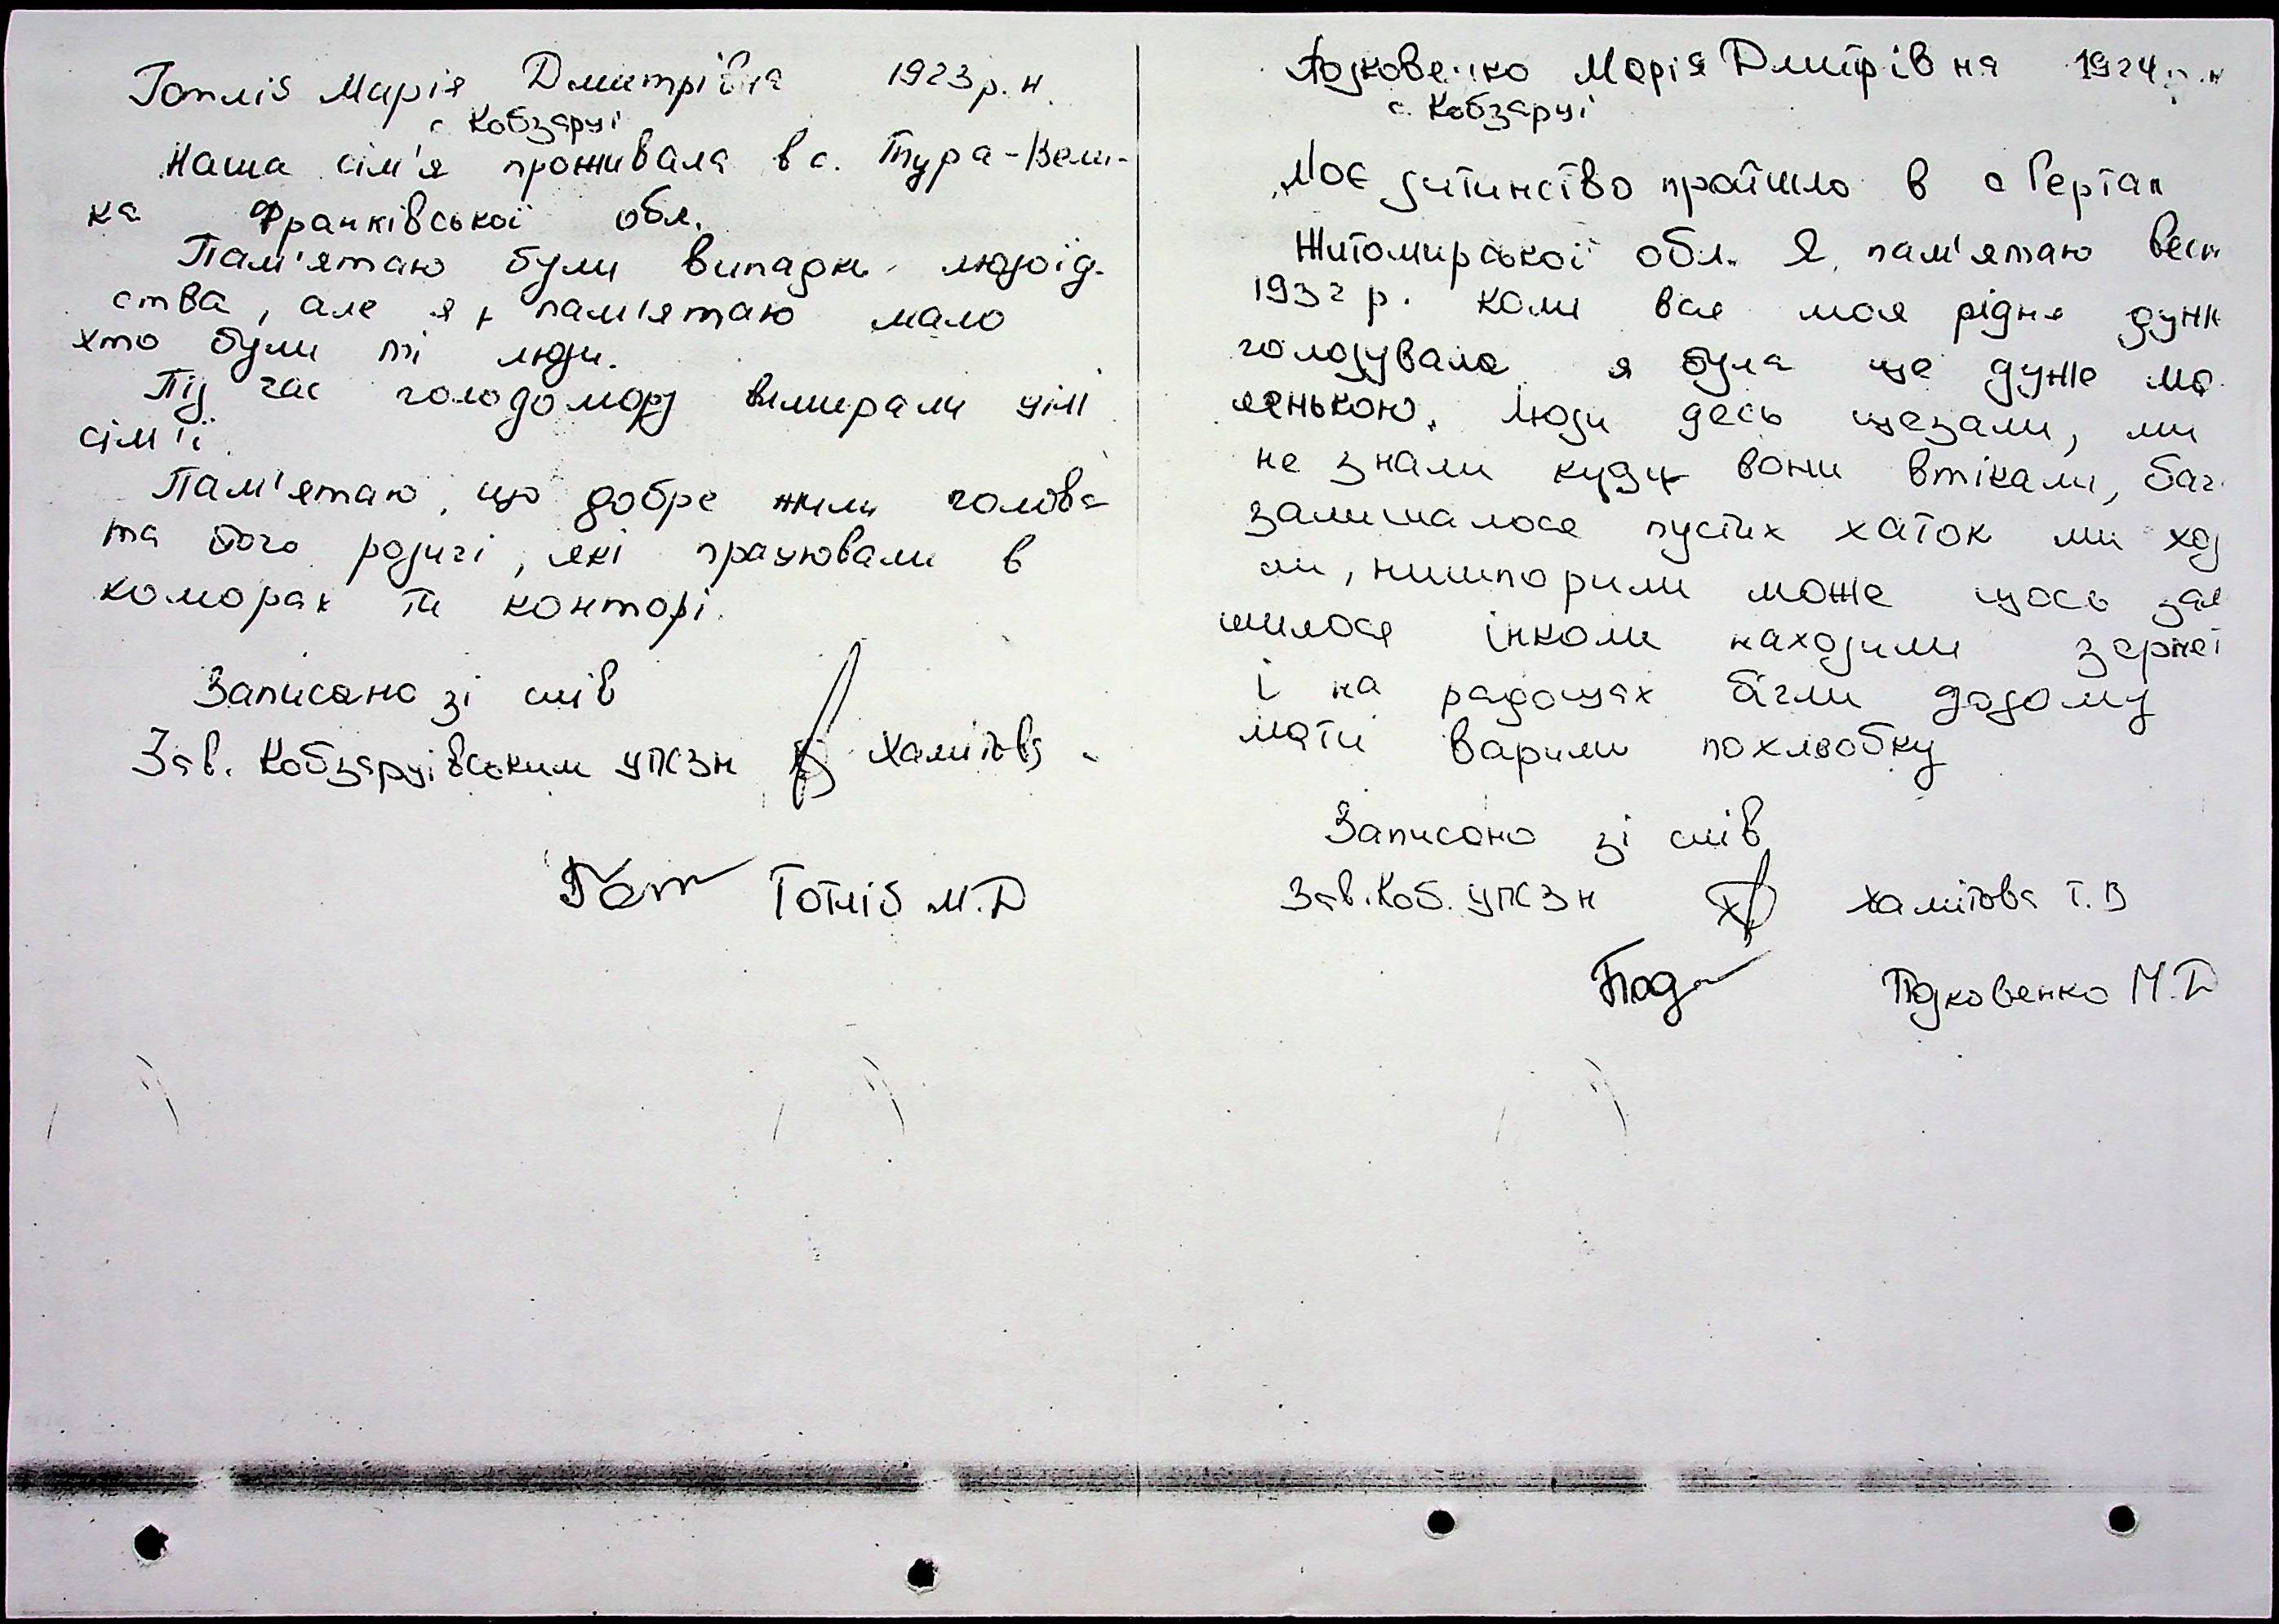 Готліб Марія Дмитрівна 1923 р.н.
с. Кобзарці
Наша сім'я проживала в с. Тура-Вели-
ка Франківської обл.
Пам'ятаю були випадки людоїд-
ства, але я пам'ятаю мало
хто були ті люди.
Під час голодомору вимирали цілі
сім'ї.
Пам'ятаю, що добре жили голова
та його родичі, які працювали в
коморах та конторі.
Записано зі слів
Зав. Кобзарцівським УПСЗН Халитова
Гот Готліб М.Д
Подковенко Марія Дмитрівна 1924 р.н
с. Кобзарці
Моє дитинство пройшло в с Гертап
Житомирської обл. Я пам'ятаю весн
1932 р. коли вся моя рідня дуже
голодувала я була ще дуже ма
ленькою. Люди десь щезали, ми
не знали куди вони втікали, баг
залишалося пустих хаток ми ход
ли, нишпорили може щось зал
шилося інколи находили зерно
і на радощах бігли додому
мати варили похльобку
Записано зі слів
Зав. Коб. УПСЗН Халитова Т.В
Под Подковенко М.Д